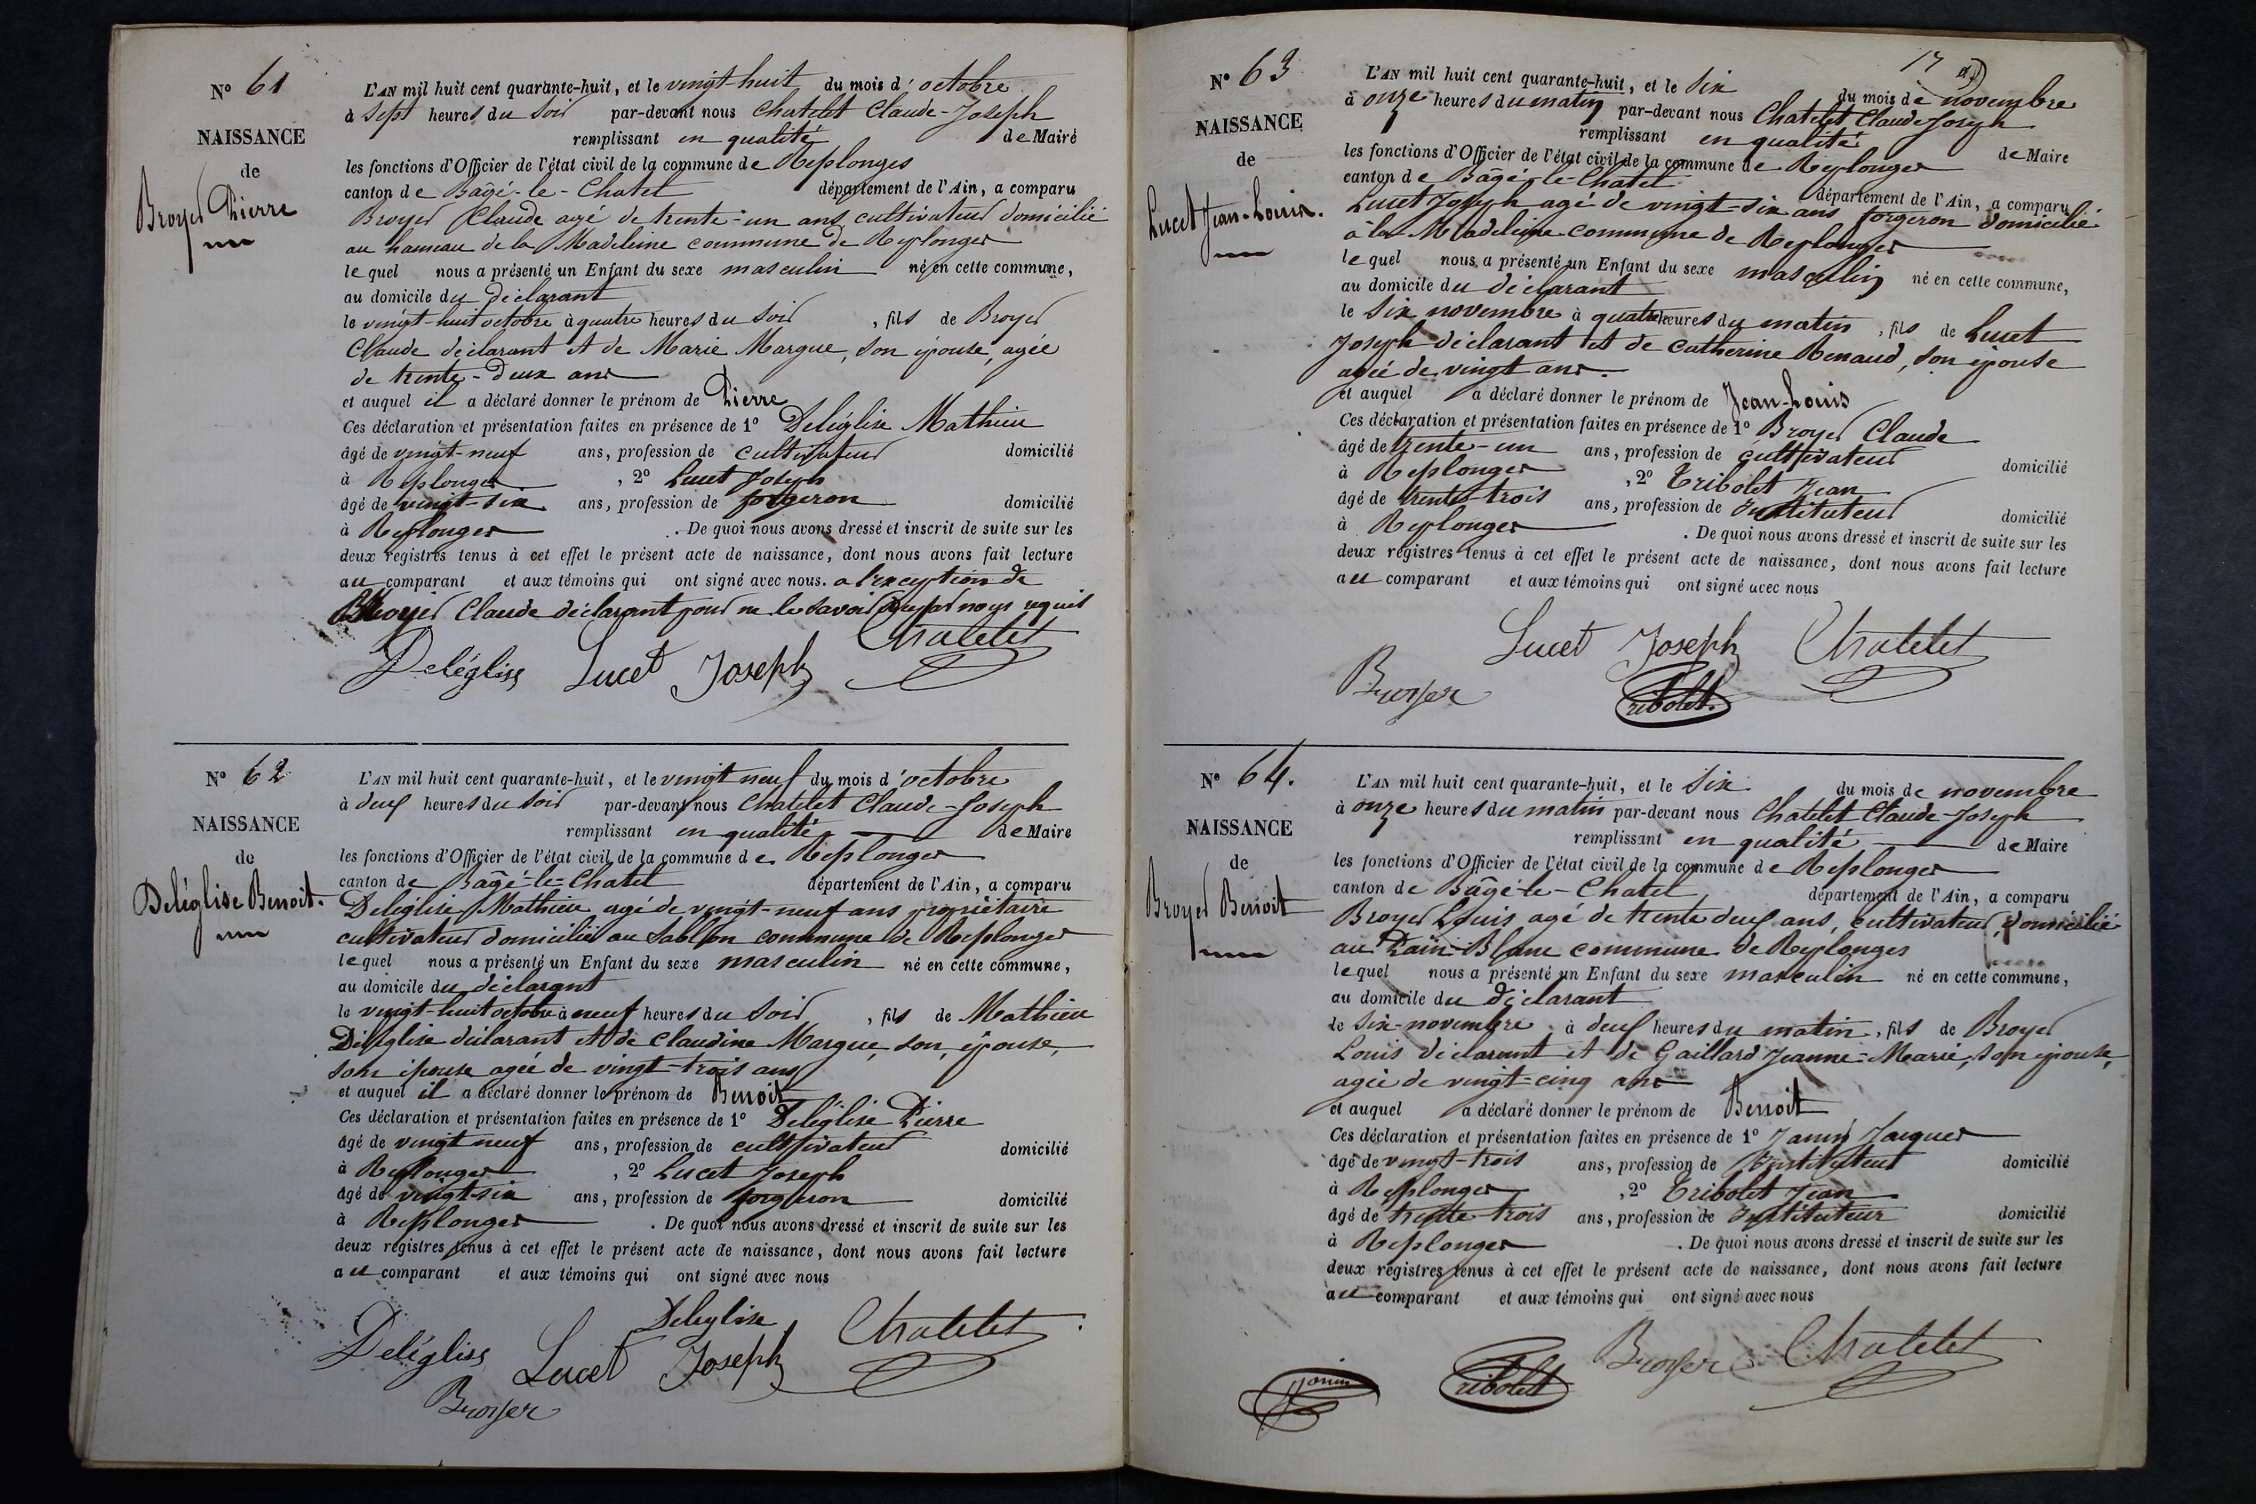 N° 61
NAISSANCE
de
Broyer Pierre
L'AN mil huit cent quarante-huit, et le vingt-huit du mois d'octobre
à sept heures du soir par-devant nous Chatelet Claude-Joseph
remplissant en qualité de Maire
les fonctions d'Officier de l'état civil de la commune de Replonges
canton de Bâgé-le-Chatel département de l'Ain, a comparu
Broyer Claude agé de trente-un ans cultivateur domicilié
au hameau de la Madeleine commune de Replonges
lequel nous a présenté un Enfant du sexe masculin né en cette commune,
au domicile du déclarant
le vingt-huit octobre à quatre heures du soir, fils de Broyer
Claude déclarant et de Marie Margue, son épouse, agée
de trente-deux ans
et auquel il a déclaré donner le prénom de Pierre
Ces déclaration et présentation faites en présence de 1° Deléglise Mathieu
âgé de vingt-neuf ans, profession de cultivateur domicilié
à Replonges, 2° Lucet Joseph
âgé de vingt-six ans, profession de forgeron domicilié
à Replonges. De quoi nous avons dressé et inscrit de suite sur les
deux registres tenus à cet effet le présent acte de naissance, dont nous avons fait lecture
au comparant et aux témoins qui ont signé avec nous. a l'exception de
Broyer Claude déclarant pour ne le savoir par nous requis
Chatelet
Deléglise Lucet Joseph
N° 62
NAISSANCE
de
Deléglise Benoit.
L'AN mil huit cent quarante-huit, et le vingt neuf du mois d'octobre
à deux heures du soir par-devant nous Chatelet Claude-Joseph
remplissant en qualité de Maire
les fonctions d'Officier de l'état civil de la commune de Replonges
canton de Bâgé-le-Chatel département de l'Ain, a comparu
Deléglise Mathieu agé de vingt-neuf ans propriétaire
cultivateur domicilié au Sablon commune de Replonges
lequel nous a présenté un Enfant du sexe masculin né en cette commune,
au domicile du déclarant
le vingt-huit octobre à neuf heures du soir, fils de Mathieu
Déléglise déclarant et de Claudine Margue, son, épouse,
son épouse agée de vingt-trois ans
et auquel il a déclaré donner le prénom de Benoit
Ces déclaration et présentation faites en présence de 1° Deléglise Pierre
âgé de vingt neuf ans, profession de cultivateur domicilié
à Replonges, 2° Lucet Joseph
âgé de vingt-six ans, profession de forgeron domicilié
à Replonges. De quoi nous avons dressé et inscrit de suite sur les
deux registres tenus à cet effet le présent acte de naissance, dont nous avons fait lecture
au comparant et aux témoins qui ont signé avec nous
Deleglise Chatelet
Deléglise Lucet Joseph
Broyer
17
N° 63
NAISSANCE
de
Lucet Jean-Louis.
L'AN mil huit cent quarante-huit, et le six du mois de novembre
à onze heures du matin par-devant nous Chatelet Claude Joseph
remplissant en qualité de Maire
les fonctions d'Officier de l'état civil de la commune de Replonges
canton de Bâgé-le-Chatel département de l'Ain, a comparu
Lucet Joseph agé de vingt-six ans forgeron domicilié
à la Madeleine commune de Replonges
lequel nous a présenté un Enfant du sexe masculin né en cette commune,
au domicile du déclarant
le six novembre à quatre heures du matin, fils de Lucet
Joseph déclarant et de Catherine Renaud, son épouse
agée de vingt ans.
et auquel a déclaré donner le prénom de Jean-Louis
Ces déclaration et présentation faites en présence de 1° Broyer Claude
âgé de trente-un ans, profession de cultivateur domicilié
à Replonges, 2° Tribolet Jean
âgé de trente-trois ans, profession de Instituteur domicilié
à Replonges. De quoi nous avons dressé et inscrit de suite sur les
deux registres tenus à cet effet le présent acte de naissance, dont nous avons fait lecture
au comparant et aux témoins qui ont signé avec nous
Lucet Joseph Chatelet
Broyer Tribolet.
N° 64.
NAISSANCE
de
Broyer Benoit
L'AN mil huit cent quarante-huit, et le six du mois de novembre
à onze heures du matin par-devant nous Chatelet Claude-Joseph
remplissant en qualité de Maire
les fonctions d'Officier de l'état civil de la commune de Replonges
canton de Bâgé-le-Chatel département de l'Ain, a comparu
Broyer Louis agé de trente deux ans, cultivateur, domicilié
au Pain-Blanc commune de Replonges
lequel nous a présenté un Enfant du sexe masculin né en cette commune,
au domicile du déclarant
le six-novembre à deux heures du matin, fils de Broyer
Louis déclarant et de Gaillard Jeanne-Marie, son épouse,
agée de vingt-cinq ans
et auquel a déclaré donner le prénom de Benoit
Ces déclaration et présentation faites en présence de 1° Janin Jacques
âgé de vingt-trois ans, profession de Instituteur domicilié
à Replonges, 2° Tribolet Jean
âgé de trente trois ans, profession de Instituteur domicilié
à Replonges. De quoi nous avons dressé et inscrit de suite sur les
deux registres tenus à cet effet le présent acte de naissance, dont nous avons fait lecture
au comparant et aux témoins qui ont signé avec nous
Broyer Chatelet
Janin Tribolet